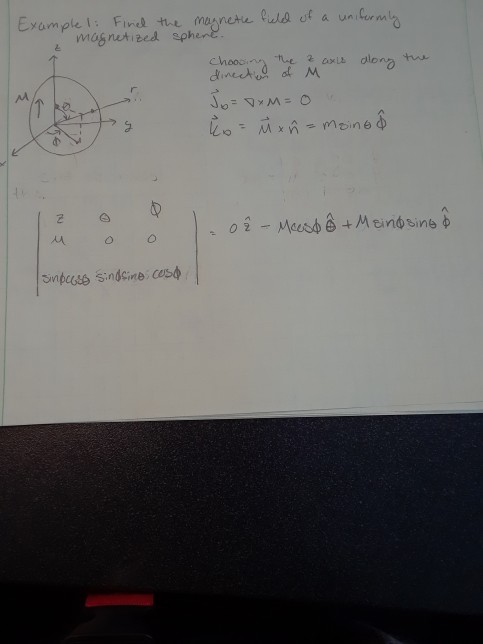 Example 1: Find the magnetic field of a uniformly
magnetized sphere.
z
M
θ
r
y
ϕ
choosing the z axis along the
direction of M
J⃗b = ∇ x M = 0
K⃗b = M⃗ x n̂ = msinθ ϕ̂
z θ ϕ
M 0 0
sinϕcosθ sinϕsinθ cosϕ
= 0 ẑ - Mcosϕ θ̂ + M sinϕ sinθ ϕ̂